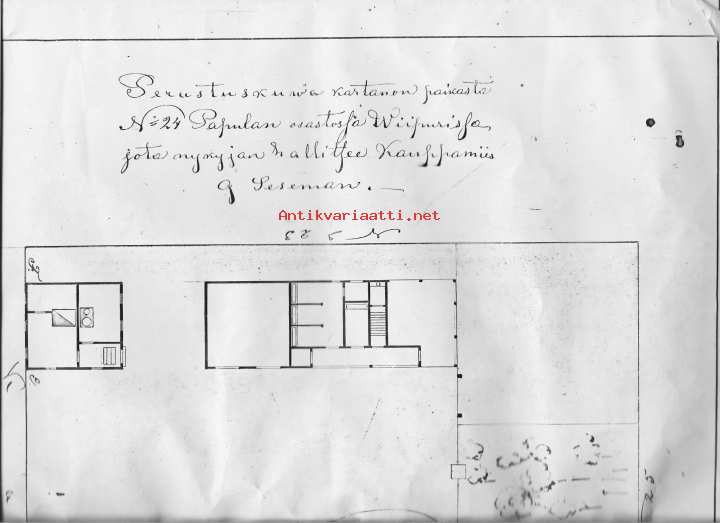 Perustuskuwa kartanon paikasta
No 24 Papulan osastossa Wiipurissa,
jota nykyjan hallitsee Kauppamies
G Seseman.
Antikvariaatti.net
No 23
25